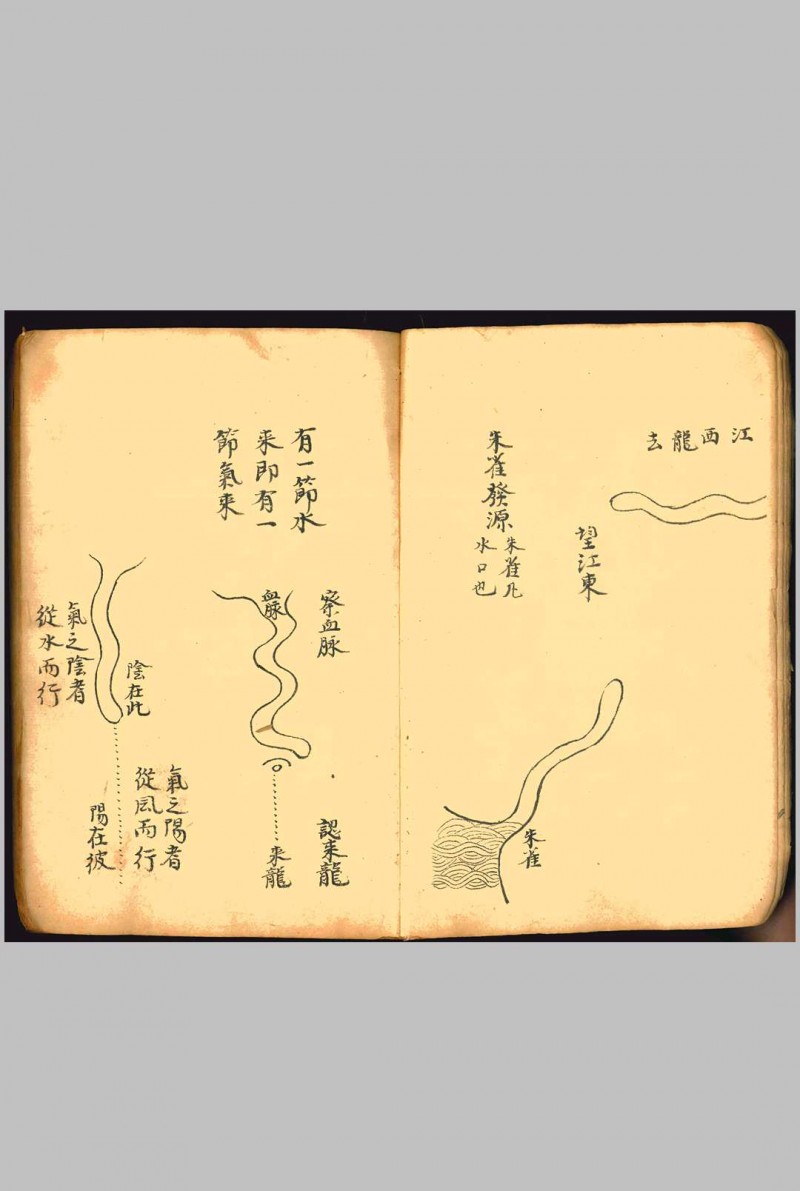 江西龍去
望江東
朱雀發源
朱雀凡
水口也
朱雀
有一節水
來即有一
節氣來
察血脉
血脉
認来龍
来龍
陰在此
氣之陰者
從水而行
氣之陽者
從風而行
陽在彼